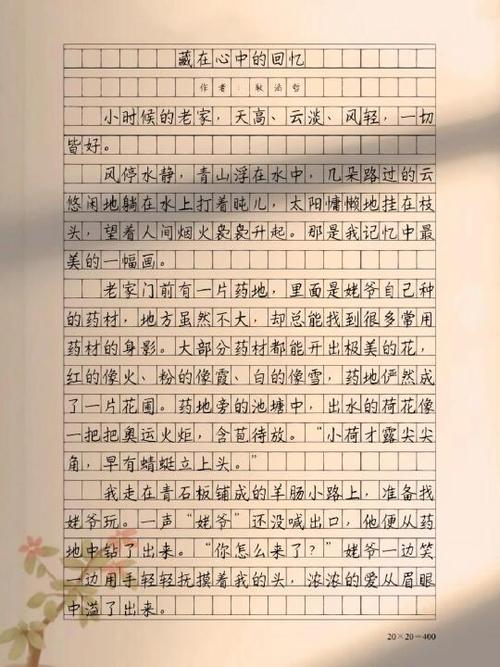 藏在心中的回忆
作者:耿浩哲
小时候的老家，天高、云淡、风轻，一切
皆好。
风停水静，青山浮在水中，几朵路过的云
悠闲地躺在水上打着盹儿，太阳慵懒地挂在枝
头，望着人间烟火袅袅升起。那是我记忆中最
美的一幅画。
老家门前有一片药地，里面是姥爷自己种
的药材，地方虽然不大，却总能找到很多常用
药材的身影。大部分药材都能开出极美的花，
红的像火、粉的像霞、白的像雪，药地俨然成
了一片花圃。药地旁的池塘中，出水的荷花像
一把把奥运火炬，含苞待放。“小荷才露尖尖
角，早有蜻蜓立上头。”
我走在青石板铺成的羊肠小路上，准备找
姥爷玩。一声“姥爷”还没喊出口，他便从药
地中钻了出来。“你怎么来了？”姥爷一边笑
一边用手轻轻抚摸着我的头，浓浓的爱从眉眼
中溢了出来。
20×20=400